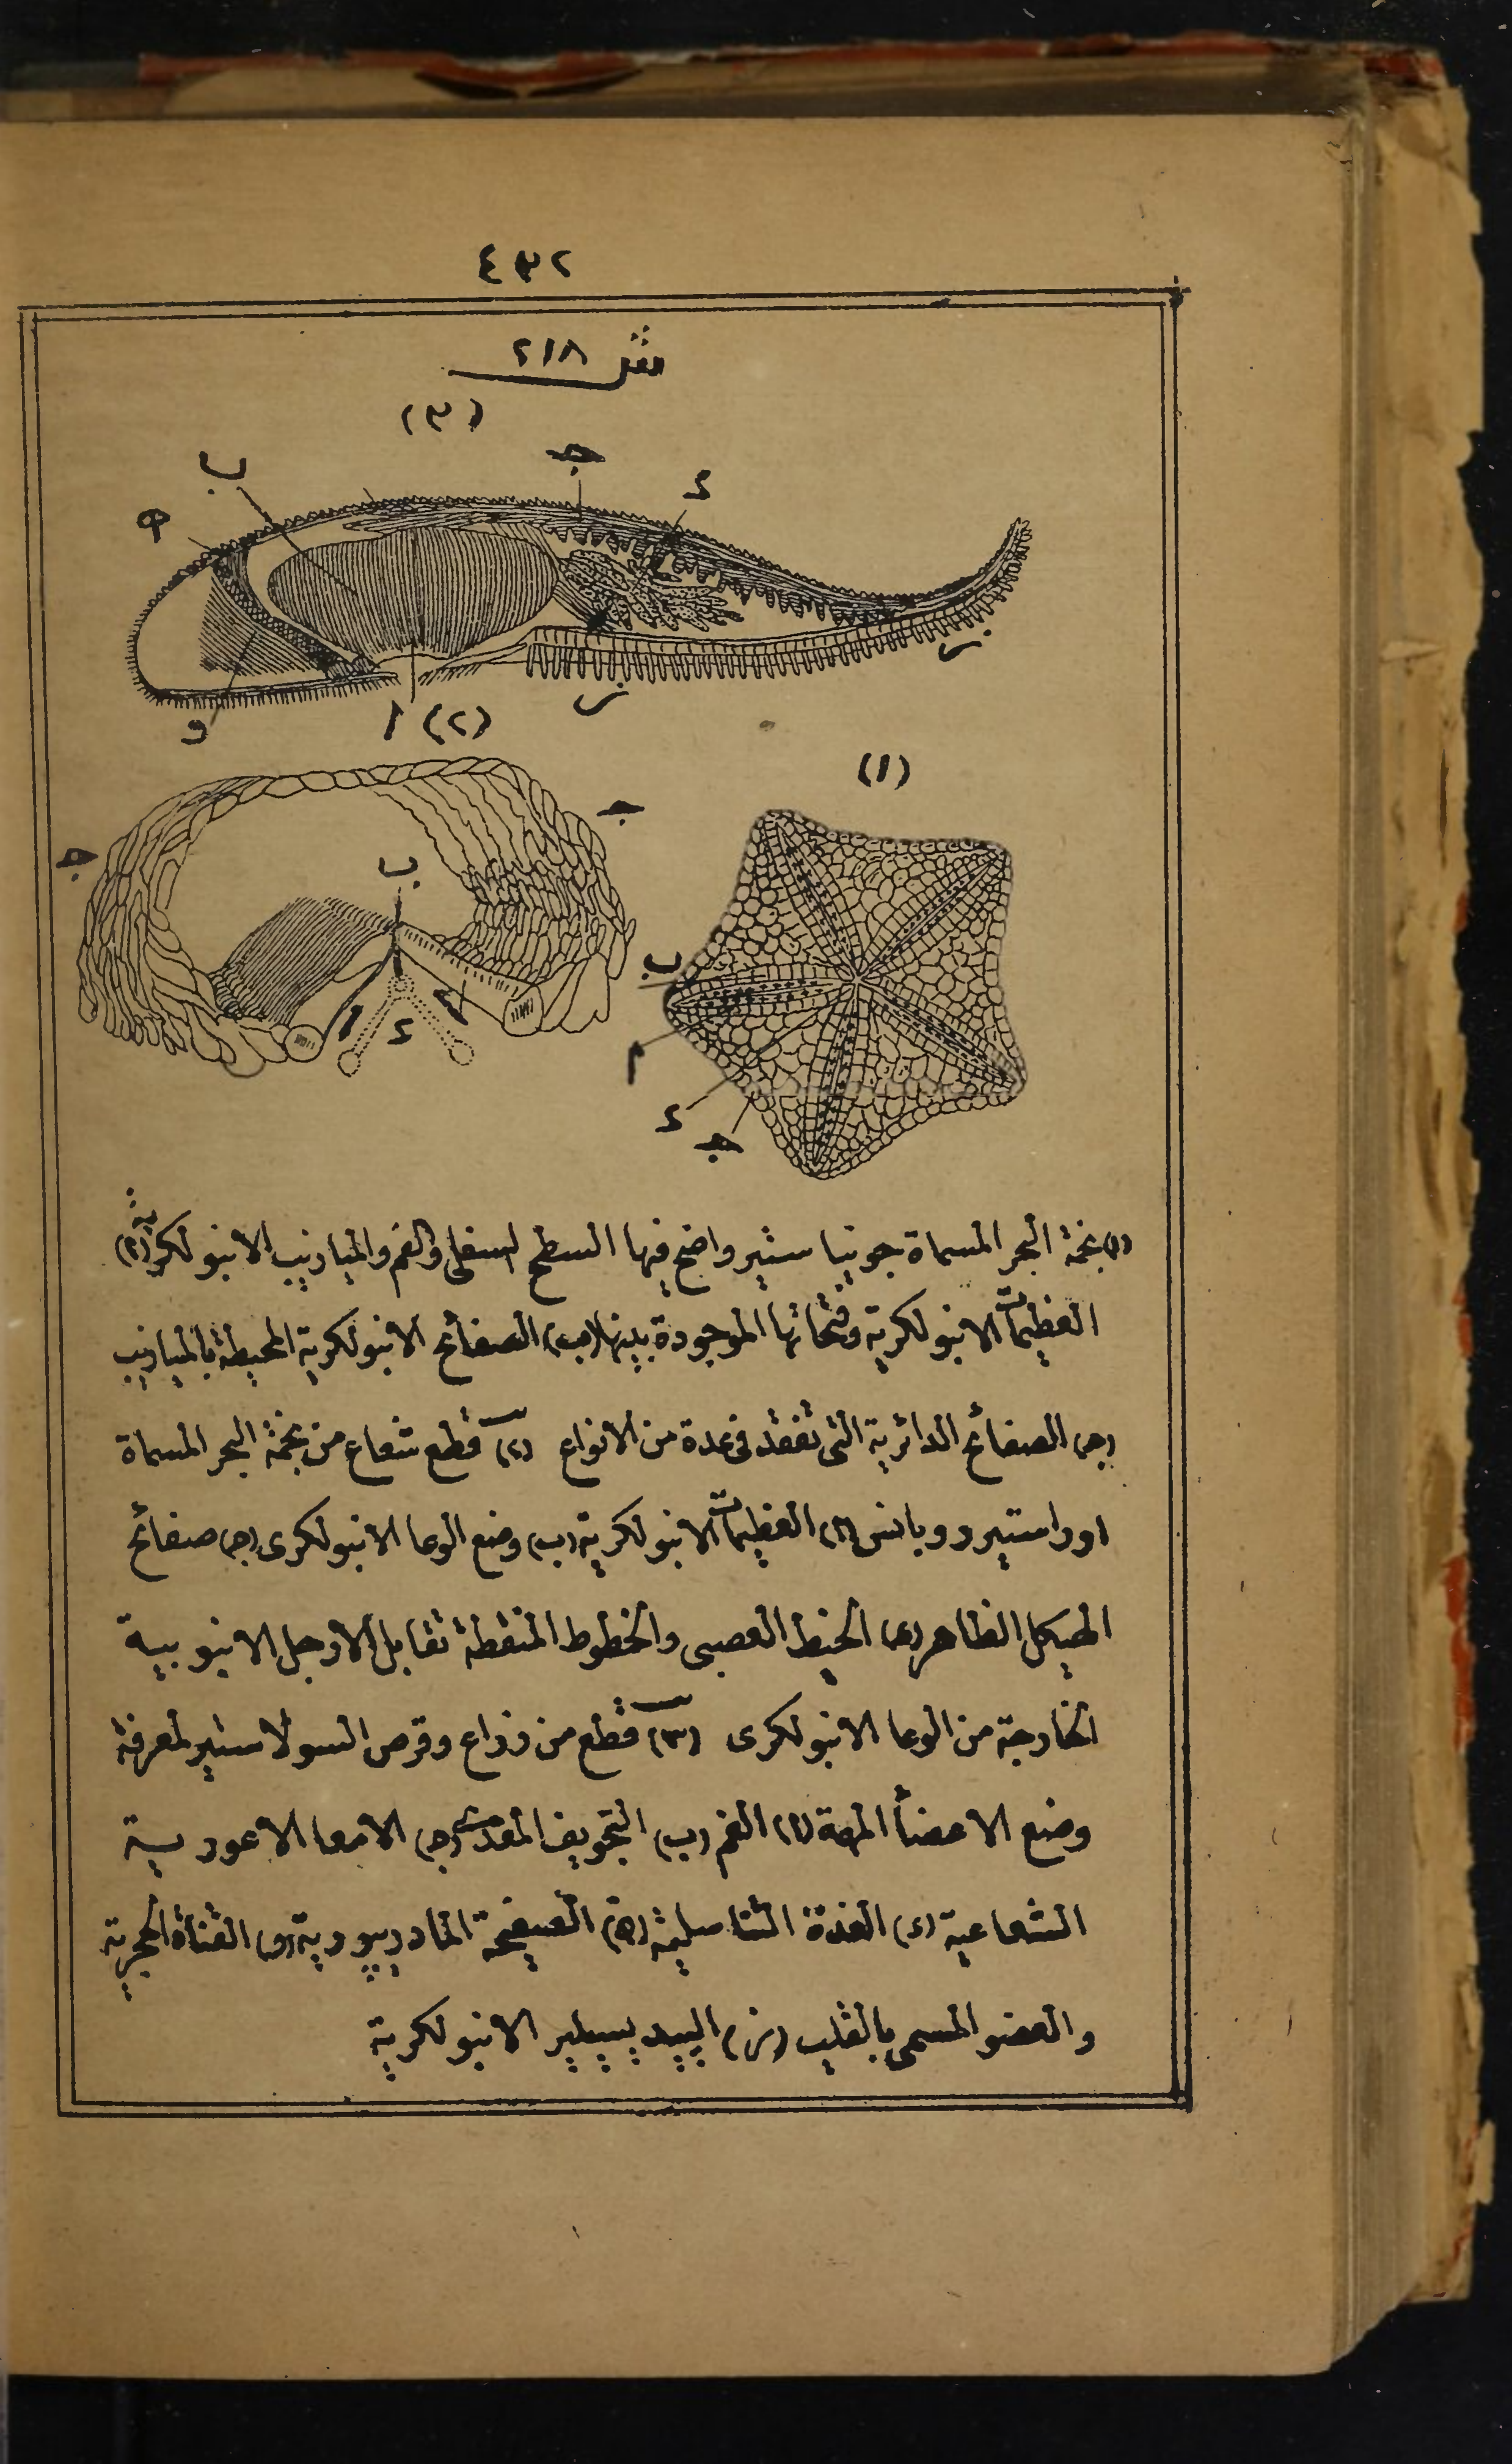 ٤٣٢
شكل ٢١٨
(٣)
ب
جـ
د
ه
ز
ز
و
ا
(٢)
(١)
جـ
جـ
ب
ا
د
ب
م
د
جـ
(١) نجمة البحر المسماة جونياستير واضح فيها السطح السفلى والفم والميازيب الانبولكرية (ا)
العظيمات الانبولكرية وفتحاتها الموجودة بينها (ب) الصفائح الانبولكرية المحيطة بالميازيب
(جـ) الصفائح الدائرية التى تفقد فى عدة من الانواع (٢) قطع شعاع من نجمة البحر المسماة
اوراستير روبانس (ا) العظيمات الانبولكرية (ب) وضع الوعا الانبولكرى (جـ) صفائح
الهيكل الظاهر (د) الخيط العصبى والخطوط المنقطة تقابل الارجل الانبوبية
الخارجة من الوعا الانبولكرى (٣) قطع من ذراع وقرص السولاستير لمعرفة
وضع الاعضأ المهمة (ا) الفم (ب) التجويف المعدى (جـ) الامعا الاعورية
الشعاعية (د) الغدة التناسلية (ه) الصفيحة المادريپورية (و) القناة الحجرية
والعضو المسمى بالقليب (ز) الپيد پيسيلير الانبولكرية